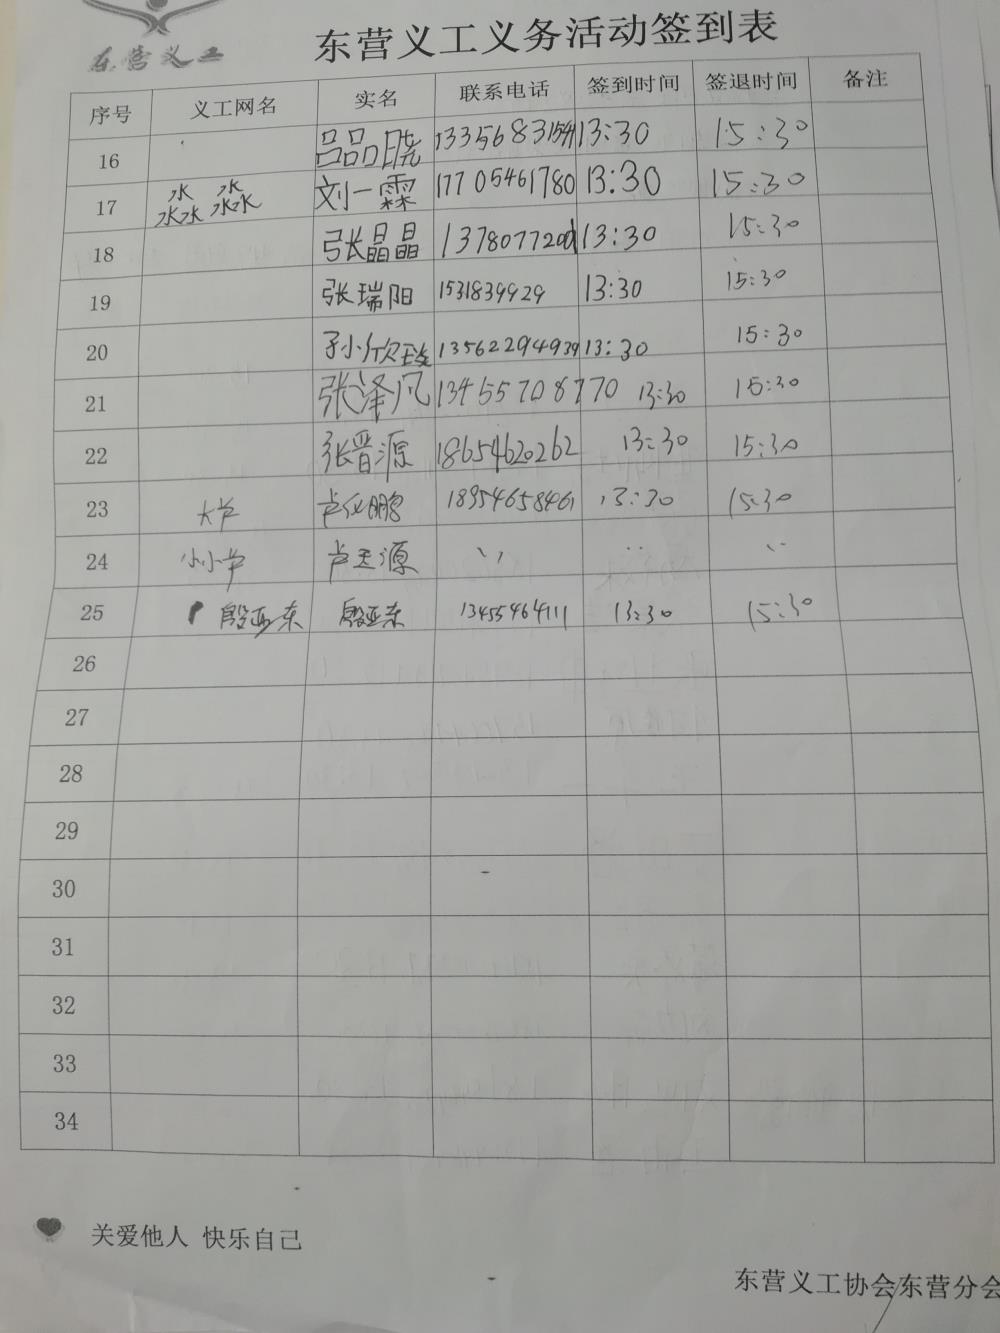 东营义工
东营义工义务活动签到表
序号 义工网名 实名 联系电话 签到时间 签退时间 备注
16 吕品晓 13356831594 13:30 15:30
17 淼 淼 刘一霖 17705461780 13:30 15:30
18 张晶晶 13:30 15:30
19 张瑞阳 1531839929 13:30 15:30
20 孙欣 13562294939 13:30 15:30
21 张泽凡 13455708770 13:30 15:30
22 张晋源 18654620262 13:30 15:30
23 大芦 18954658461 13:30 15:30
24 小小芦 芦天源 〃 〃 〃
25 殷亚东 殷亚东 13455464111 13:30 15:30
26
27
28
29
30
31
32
33
34
关爱他人 快乐自己
东营义工协会东营分会